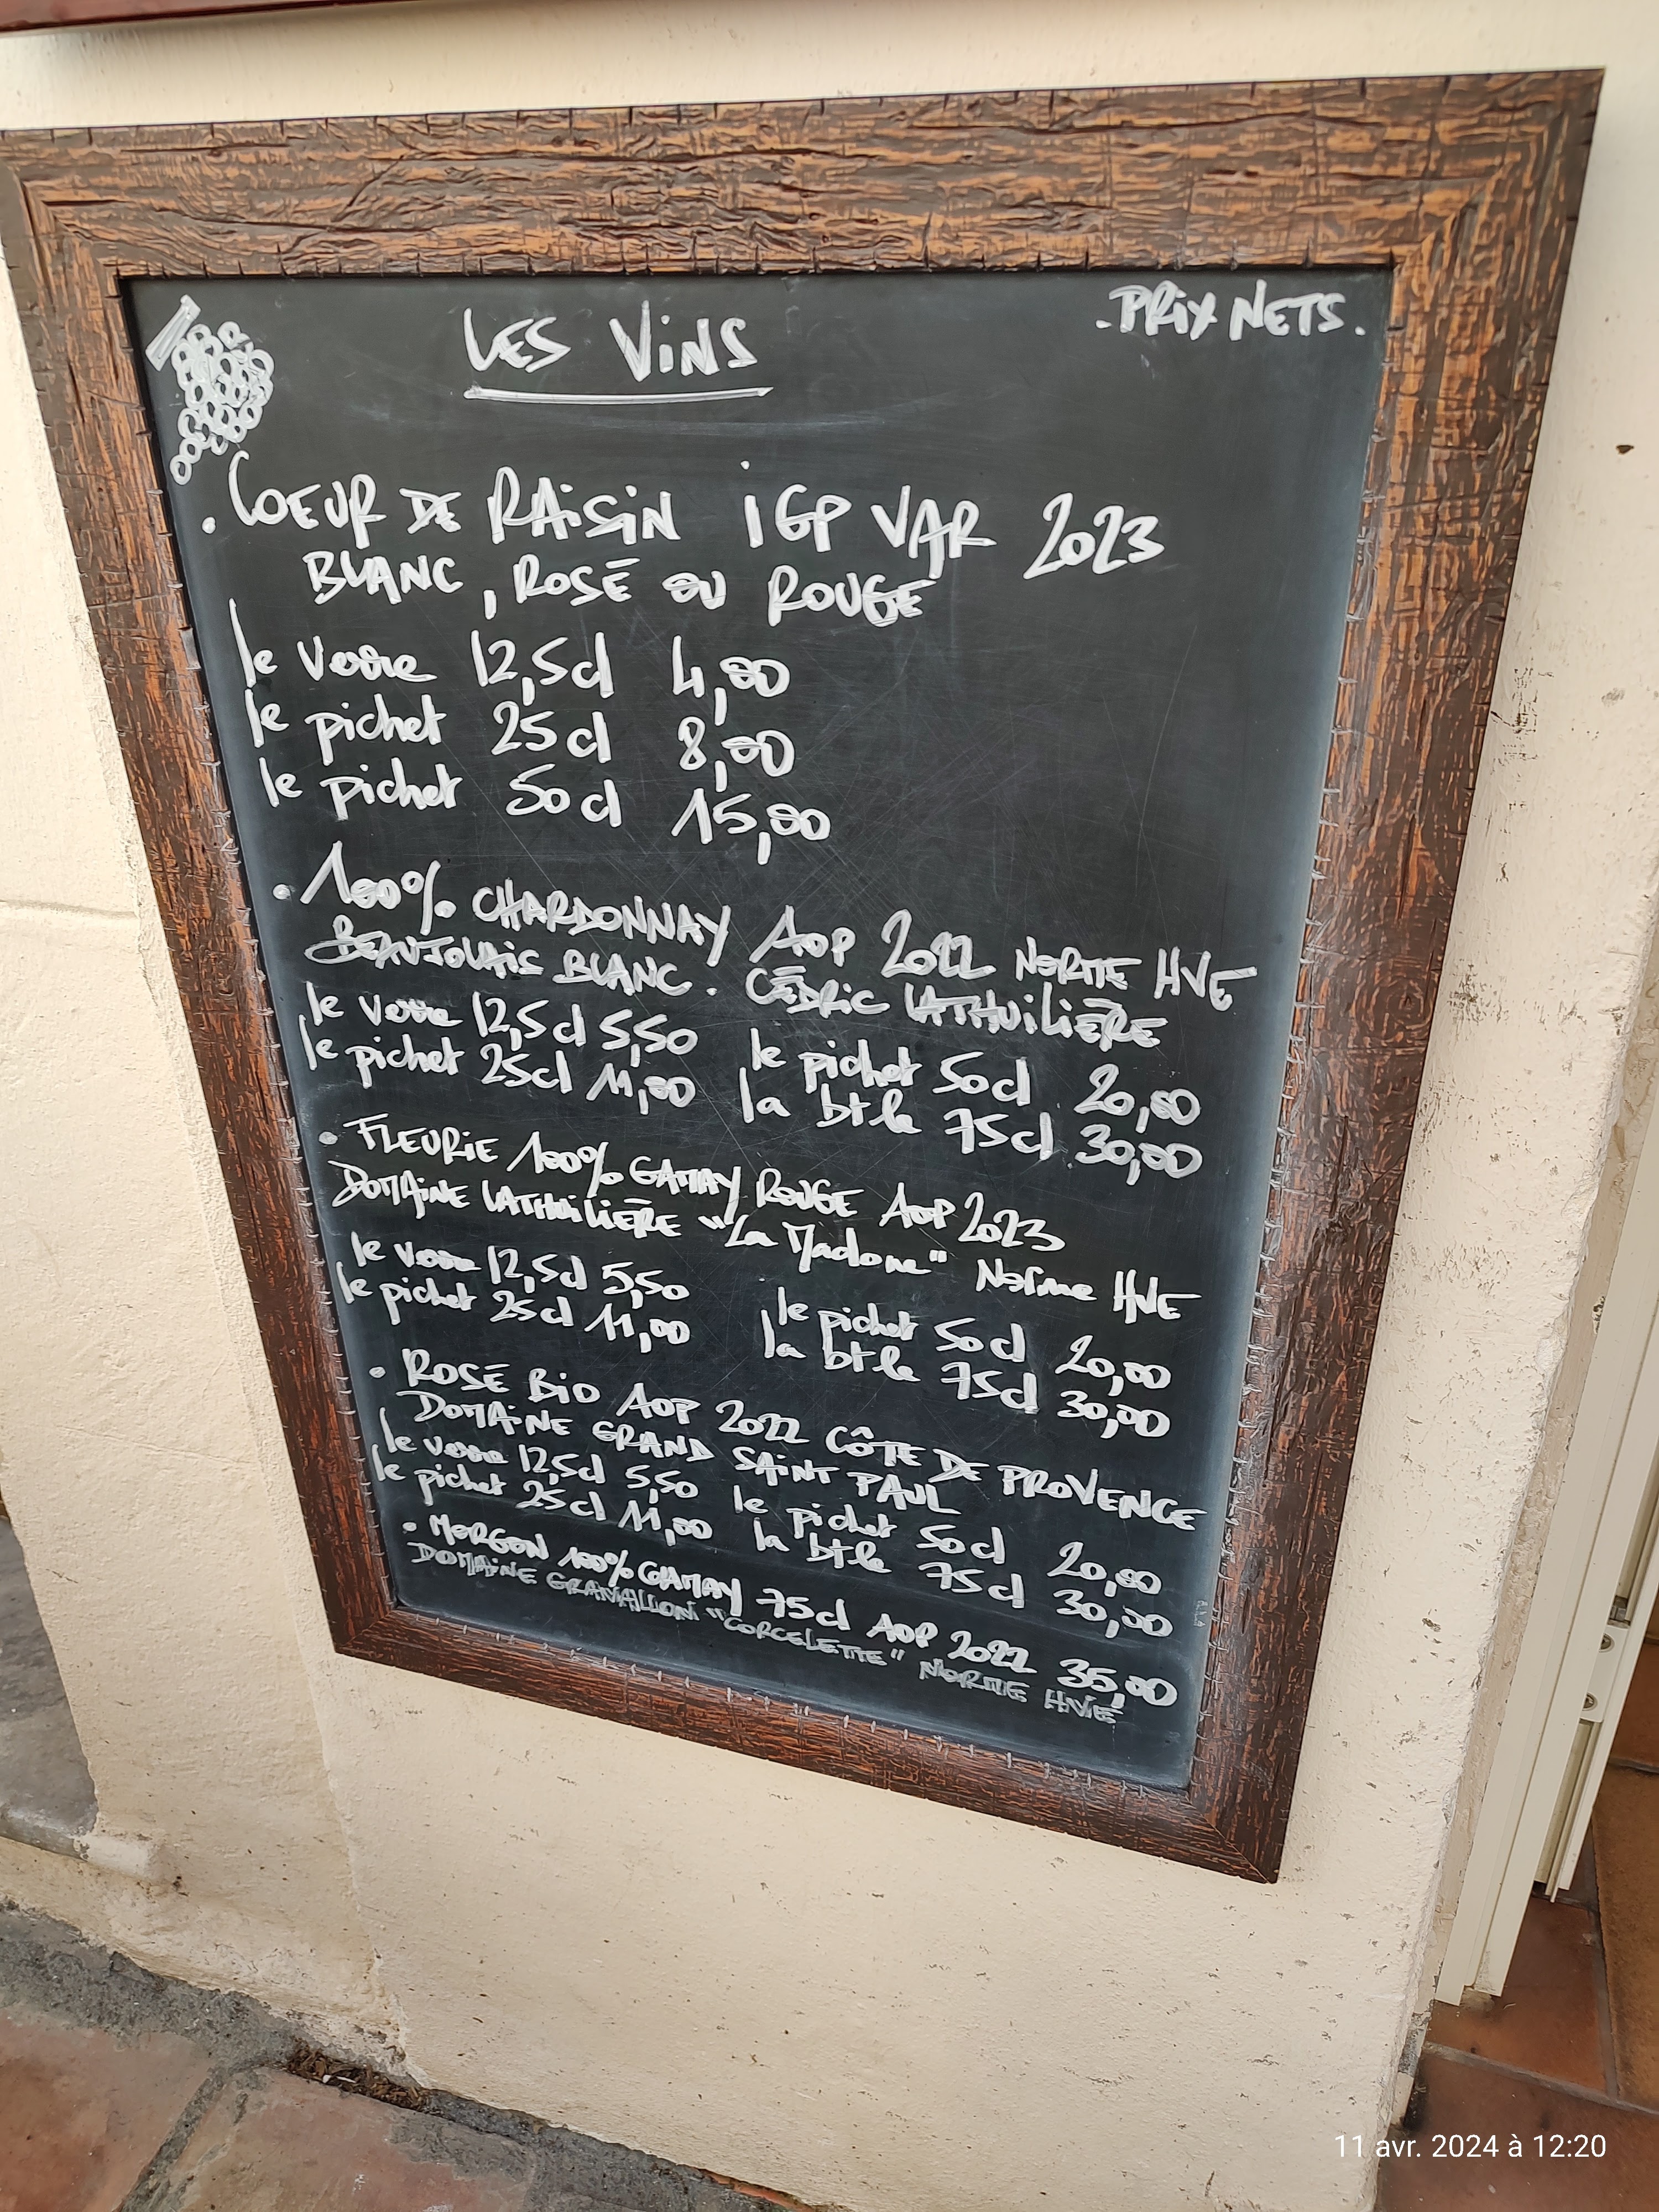 LES VINS
. PRIX NETS.
. COEUR DE RAISIN IGP VAR 2023
BLANC, ROSÉ OU ROUGE
le verre 12,5cl 4,00
le pichet 25cl 8,00
le pichet 50cl 15,00
. 100% CHARDONNAY AOP 2022 NORME HVE
BEAUJOLAIS BLANC. CÉDRIC LATHUILIÈRE
le verre 12,5cl 5,50 le pichet 50cl 20,00
le pichet 25cl 11,00 la btle 75cl 30,00
. FLEURIE 100% GAMAY ROUGE AOP 2023
DOMAINE LATHUILIÈRE "La Madone" Norme HVE
le verre 12,5cl 5,50 le pichet 50cl 20,00
le pichet 25cl 11,00 la btle 75cl 30,00
. ROSÉ BIO AOP 2022 CÔTE DE PROVENCE
DOMAINE GRAND SAINT PAUL
le verre 12,5cl 5,50 le pichet 50cl 20,00
le pichet 25cl 11,00 la btle 75cl 30,00
. MORGON 100% GAMAY 75cl AOP 2022 35,00
DOMAINE GRAVALLON "CORCELETTE" NORME HVE
11 avr. 2024 à 12:20